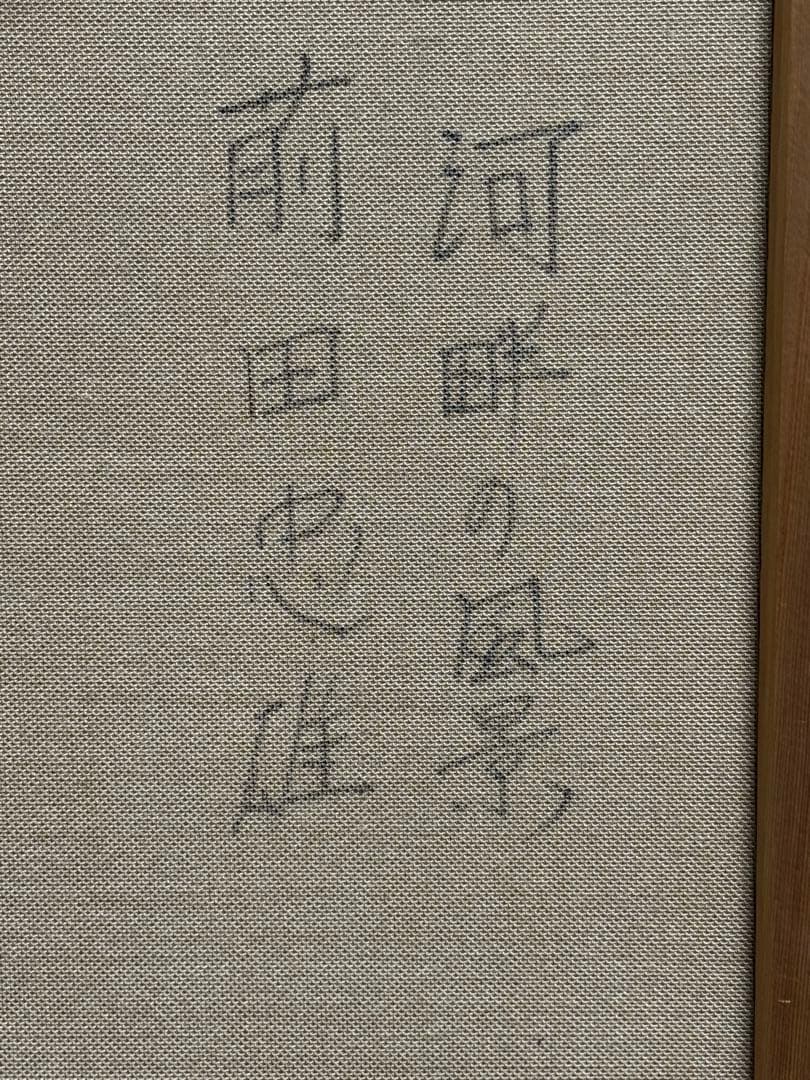 河畔の風景
前田忠雄